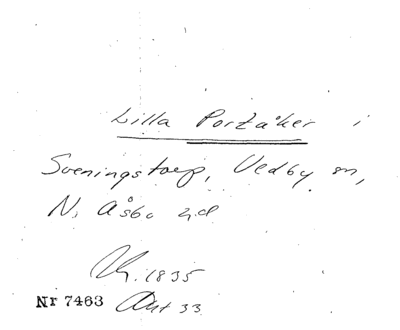 Lilla Portåker i
Sveningstorp, Vedby sn,
N. Åsbo hd
1835
Nr 7463 Akt 33